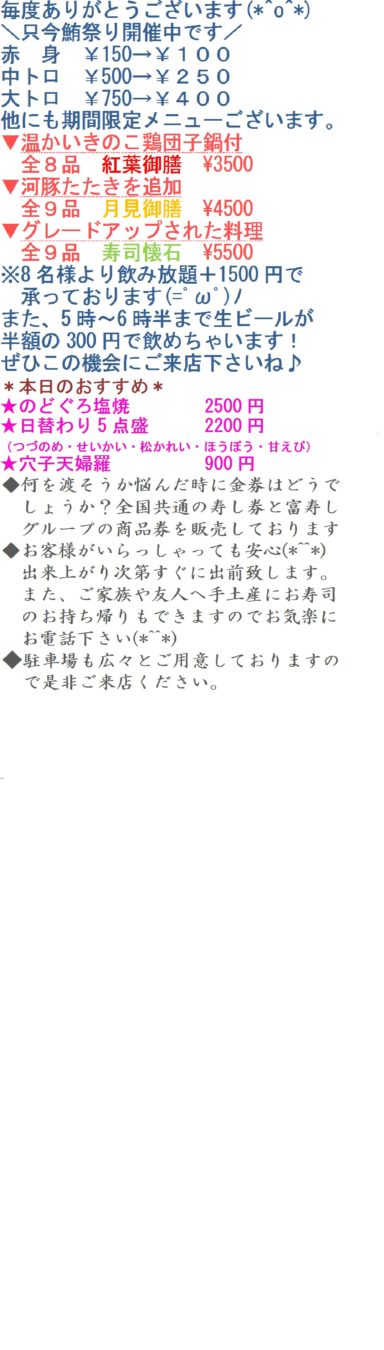 毎度ありがとうございます(*^o^*)
＼只今鮪祭り開催中です／
赤　身　￥150→￥１００
中トロ　￥500→￥２５０
大トロ　￥750→￥４００
他にも期間限定メニューございます。
▼温かいきのこ鶏団子鍋付
全８品　紅葉御膳　¥3500
▼河豚たたきを追加
全９品　月見御膳　¥4500
▼グレードアップされた料理
全９品　寿司懐石　¥5500
※8 名様より飲み放題＋1500 円で
承っております(=ﾟωﾟ)ﾉ
また、5 時～6 時半まで生ビールが
半額の 300 円で飲めちゃいます！
ぜひこの機会にご来店下さいね♪
＊本日のおすすめ＊
★のどぐろ塩焼　2500 円
★日替わり 5 点盛　2200 円
（つづのめ・せいかい・松かれい・ほうぼう・甘えび）
★穴子天婦羅　900 円
◆何を渡そうか悩んだ時に金券はどうで
しょうか？全国共通の寿し券と富寿し
グループの商品券を販売しております
◆お客様がいらっしゃっても安心(*^^*)
出来上がり次第すぐに出前致します。
また、ご家族や友人へ手土産にお寿司
のお持ち帰りもできますのでお気楽に
お電話下さい(*^^*)
◆駐車場も広々とご用意しておりますの
で是非ご来店ください。